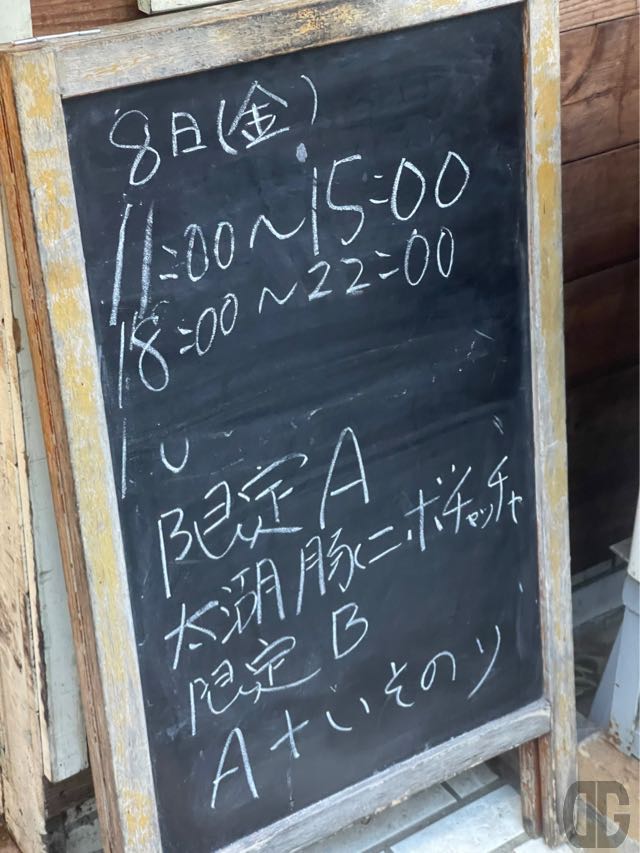 8日(金)
11:00～15:00
18:00～22:00
限定 A
太湖豚ニボチャッチャ
限定 B
A+いそのり